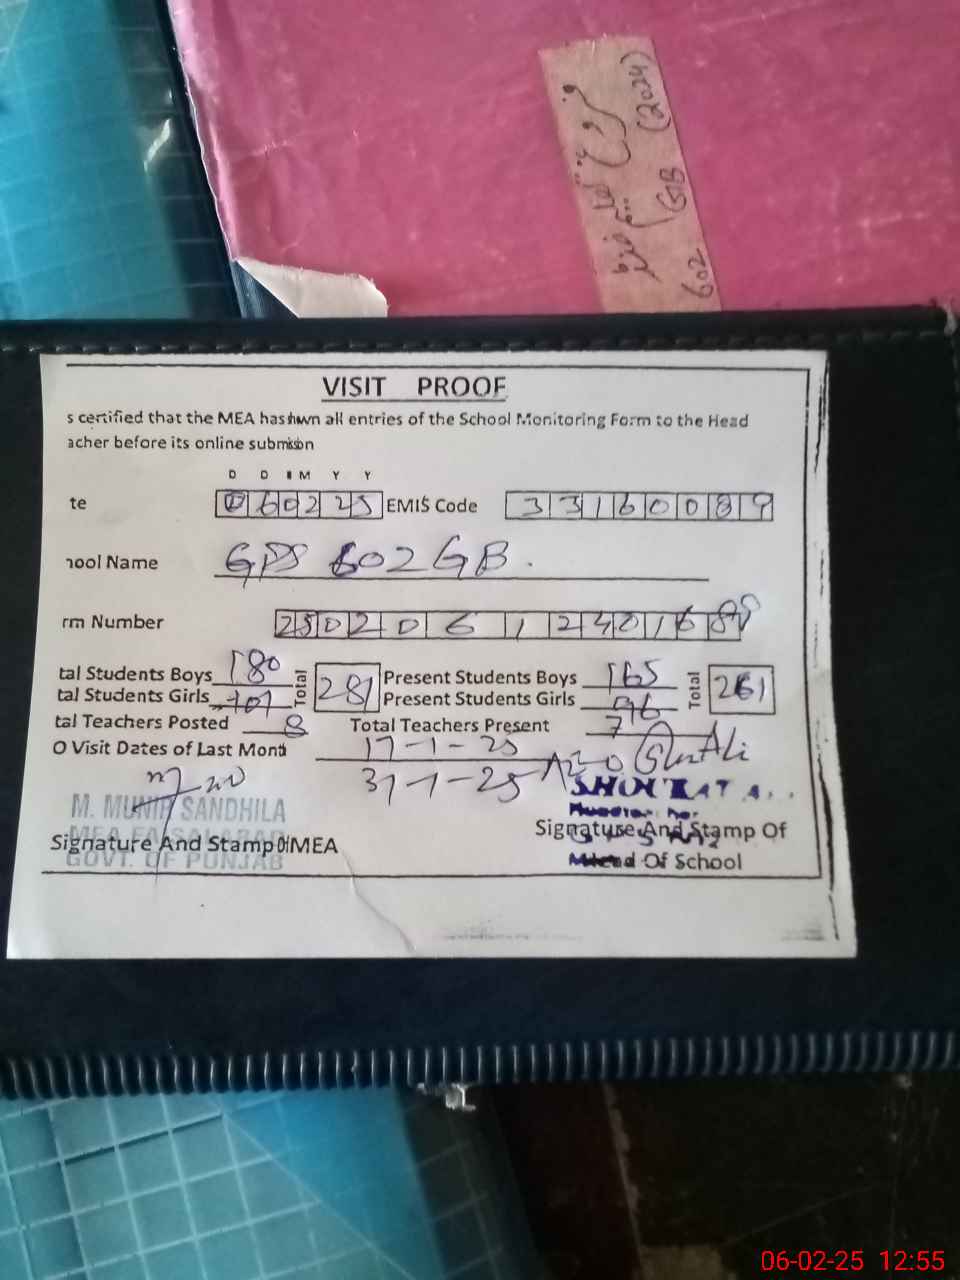 602 GB (2024)
VISIT PROOF
s certified that the MEA has shwn all entries of the School Monitoring Form to the Head
acher before its online submission
D D M M Y Y
te 060225 EMIS Code 33160089
hool Name GPS 602 GB.
rm Number
tal Students Boys 180 Total 281 Present Students Boys 165 Total 261
tal Students Girls 101 Present Students Girls 96
tal Teachers Posted 8 Total Teachers Present 7
O Visit Dates of Last Mont 17-1-25
31-1-25
M. MUNIR SANDHILA
MEA FAISALABAD
GOVT. OF PUNJAB
Signature And Stamp Of MEA
Signature And Stamp Of
Head Of School
06-02-25 12:55